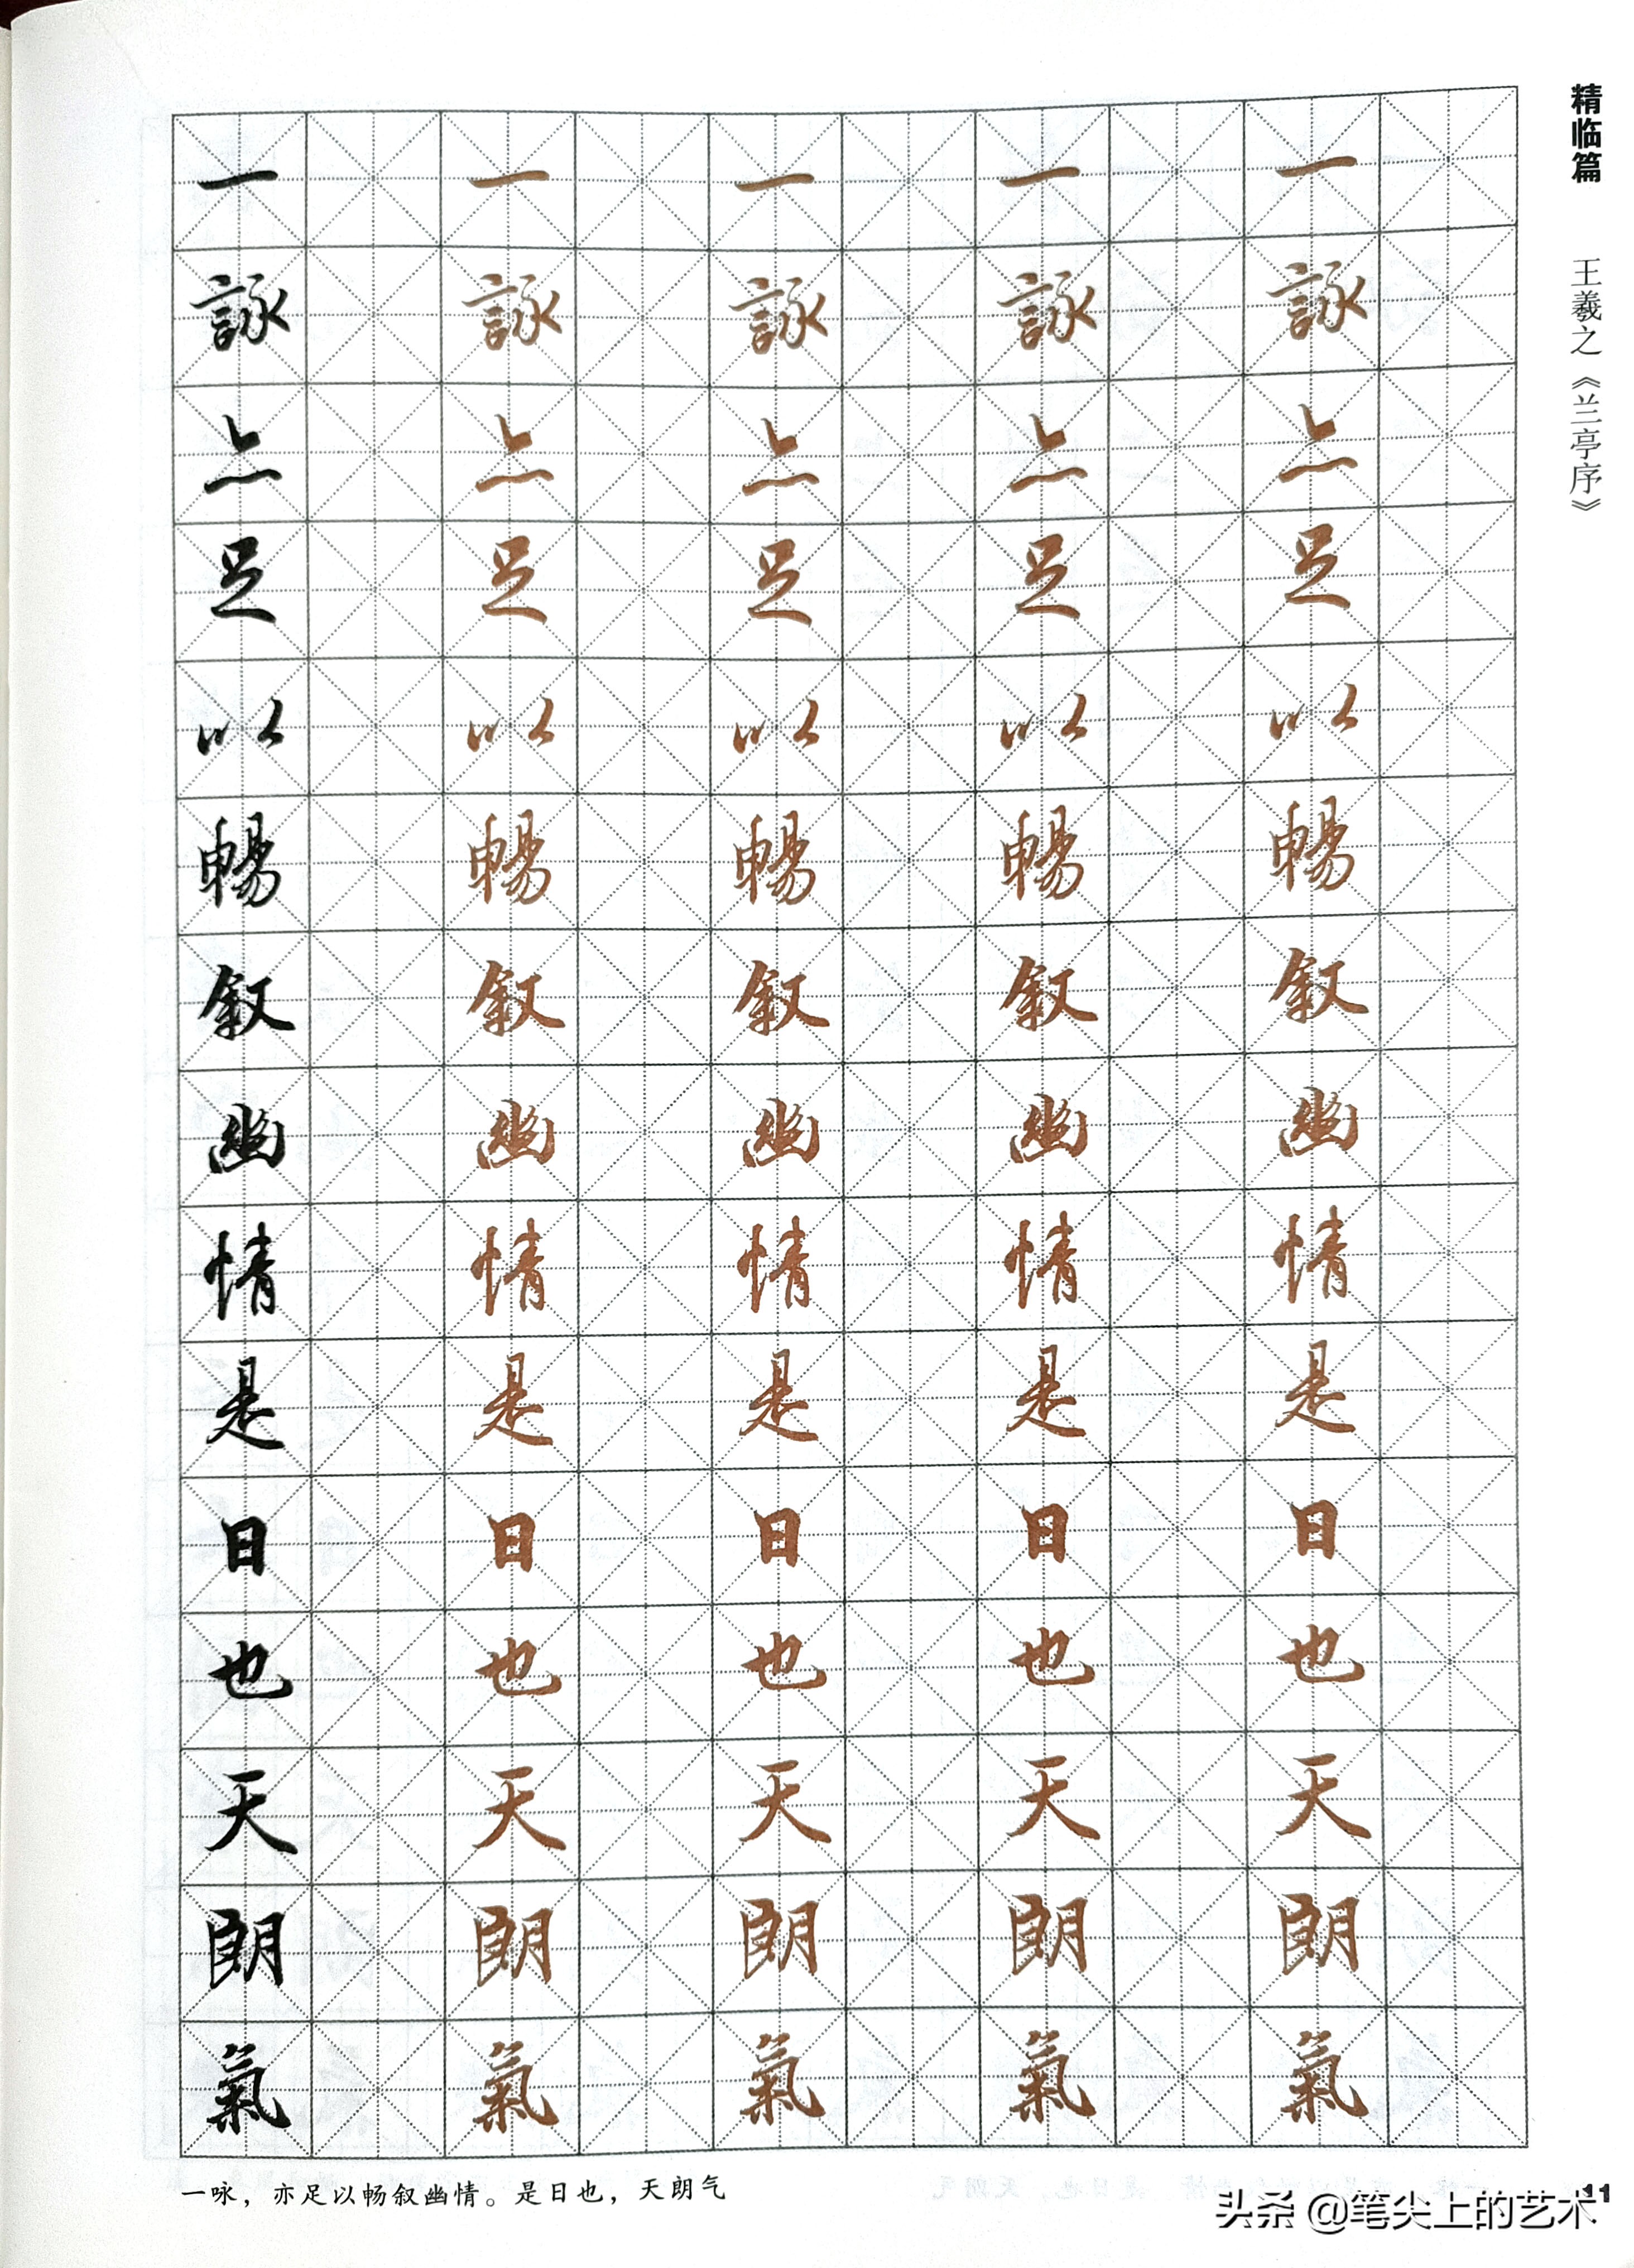 精临篇
王羲之《兰亭序》
一詠亦足以暢叙幽情是日也天朗氣
一詠亦足以暢叙幽情是日也天朗氣
一詠亦足以暢叙幽情是日也天朗氣
一詠亦足以暢叙幽情是日也天朗氣
一詠亦足以暢叙幽情是日也天朗氣
一咏，亦足以畅叙幽情。是日也，天朗气
11
头条 @笔尖上的艺术